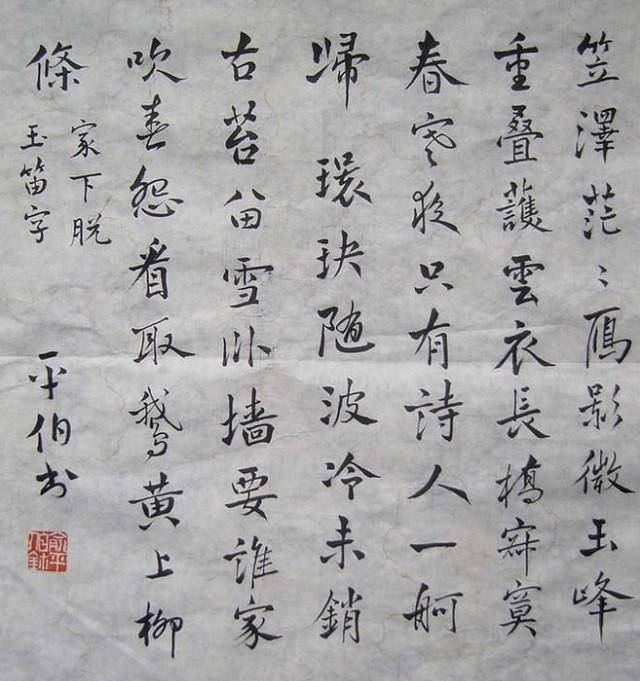 笠澤茫々鴈影微玉峰
重叠護雲衣長橋寂寞
春寒夜只有詩人一舸
歸 環玦随波冷未銷
古苔留雪卧墙要誰家
吹春怨看取鵞黄上柳
條
家下脱
玉笛字
平伯书